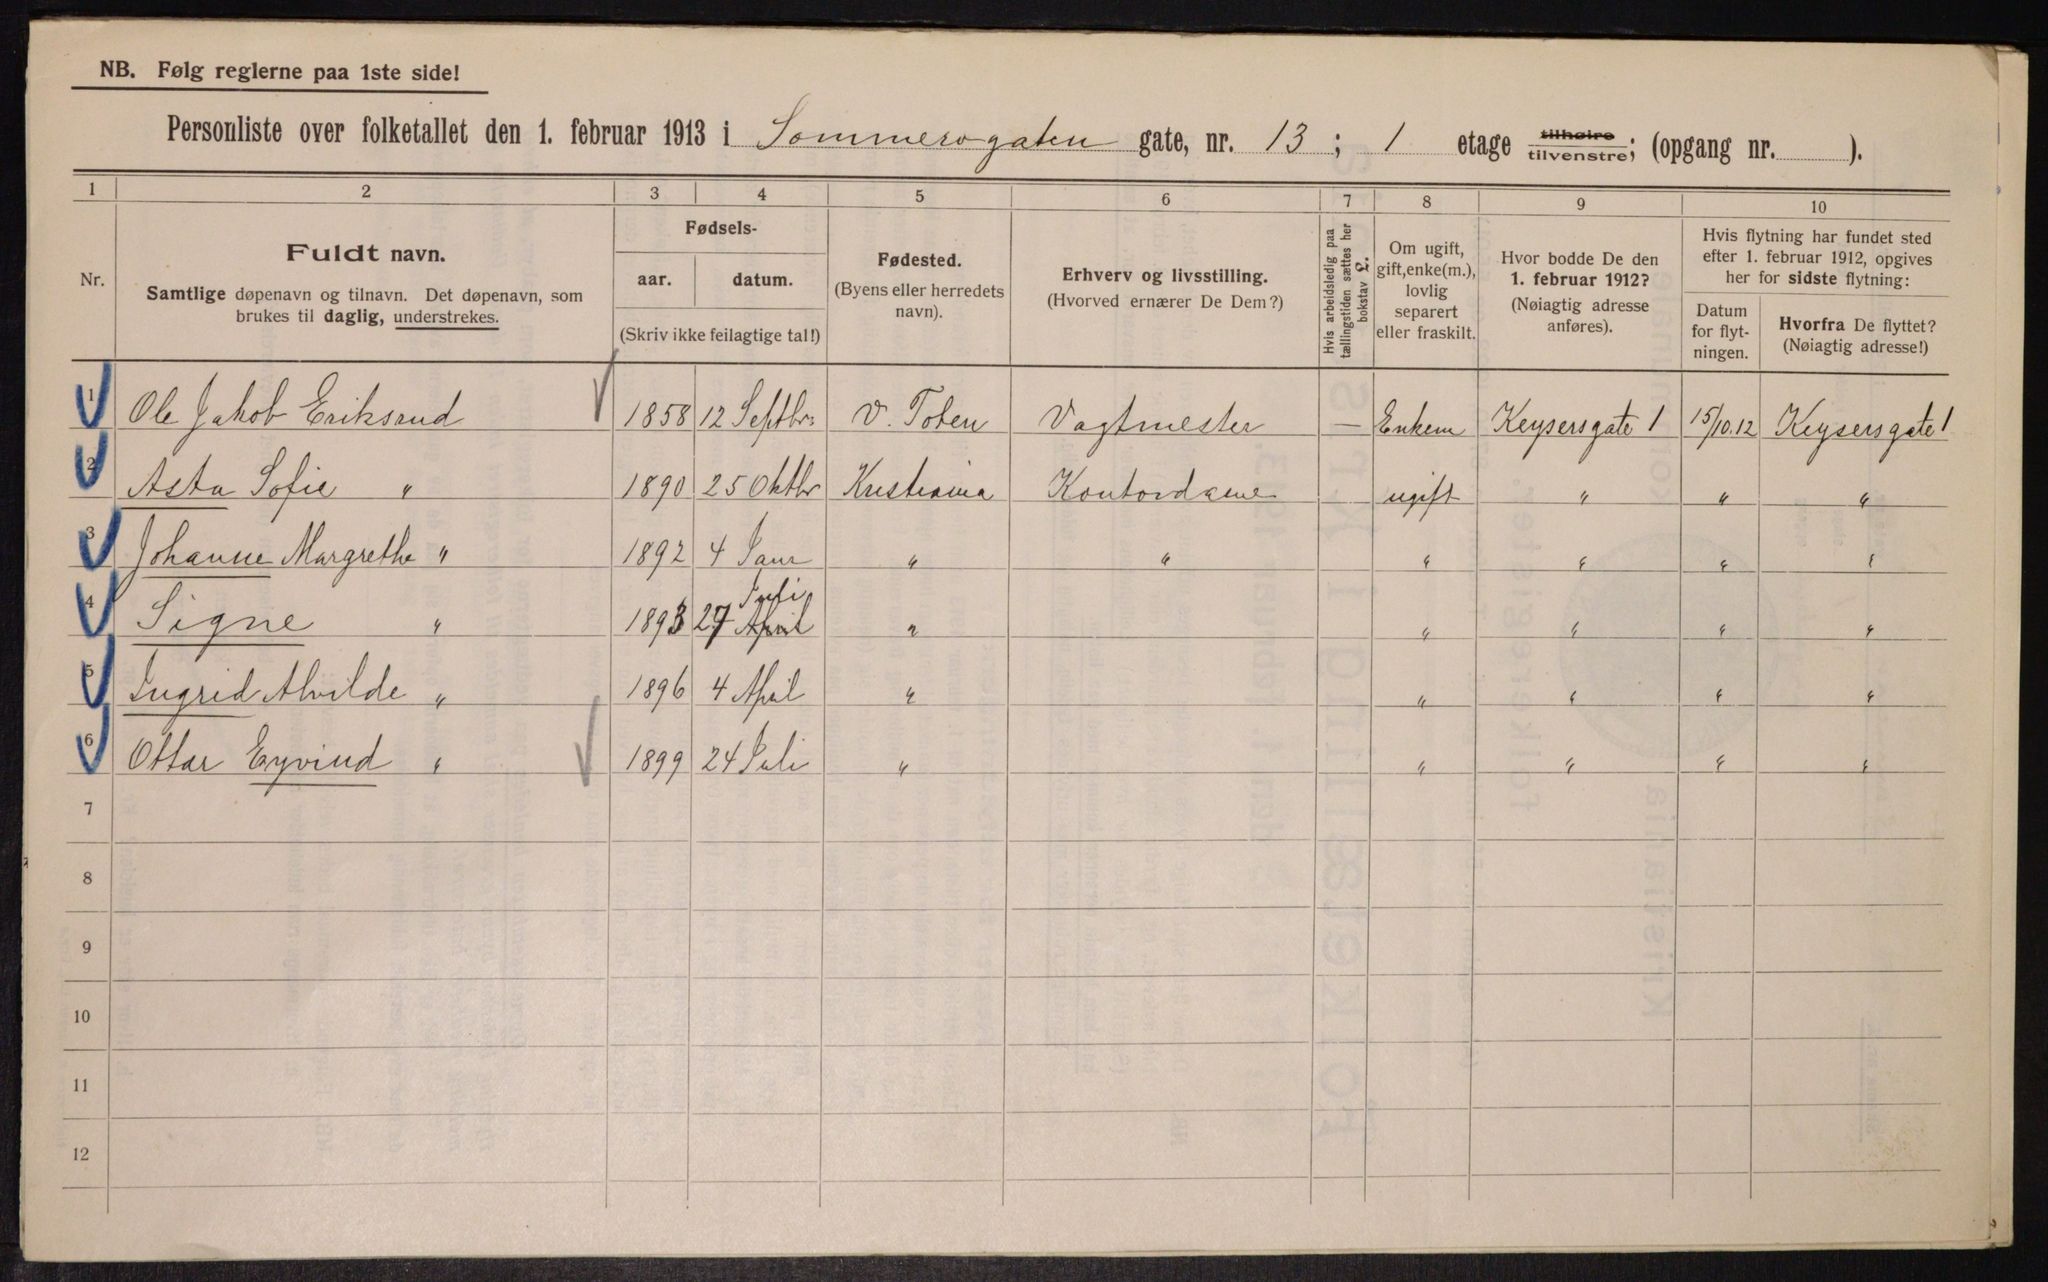 NB. Følg reglerne paa 1ste side!
Personliste over folketallet den 1. februar 1913 i Sommerogaten gate, nr. 13; 1 etage tilhøire tilvenstre; (opgang nr. ).
1 2 3 4 5 6 7 8 9 10
Nr.
Fuldt navn.
Samtlige døpenavn og tilnavn. Det døpenavn, som
brukes til daglig, understrekes.
Fødsels-
aar. datum.
(Skriv ikke feilagtige tal!)
Fødested.
(Byens eller herredets
navn).
Erhverv og livsstilling.
(Hvorved ernærer De Dem?)
Hvis arbeidsledig paa
tællingstiden sættes her
bokstav L.
Om ugift,
gift, enke(m.),
lovlig
separert
eller fraskilt.
Hvor bodde De den
1. februar 1912?
(Nøiagtig adresse
anføres).
Hvis flytning har fundet sted
efter 1. februar 1912, opgives
her for sidste flytning:
Datum
for flyt-
ningen.
Hvorfra De flyttet?
(Nøiagtig adresse!)
1 Ole Jakob Eriksrud 1858 12 Septbr. V. Toten Vagtmester — Enkem Keysersgate 1 15/10.12 Keysersgate 1
2 Asta Sofie " 1890 25 Oktbr Kristiania Kontordame ugift " " "
3 Johanne Margrethe " 1892 4 Janr " " " " " "
4 Signe " 1893 27 Juli April " " " " "
5 Ingrid Alvilde " 1896 4 April " " " " "
6 Ottar Eyvind " 1899 24 Juli " " " " "
7
8
9
10
11
12